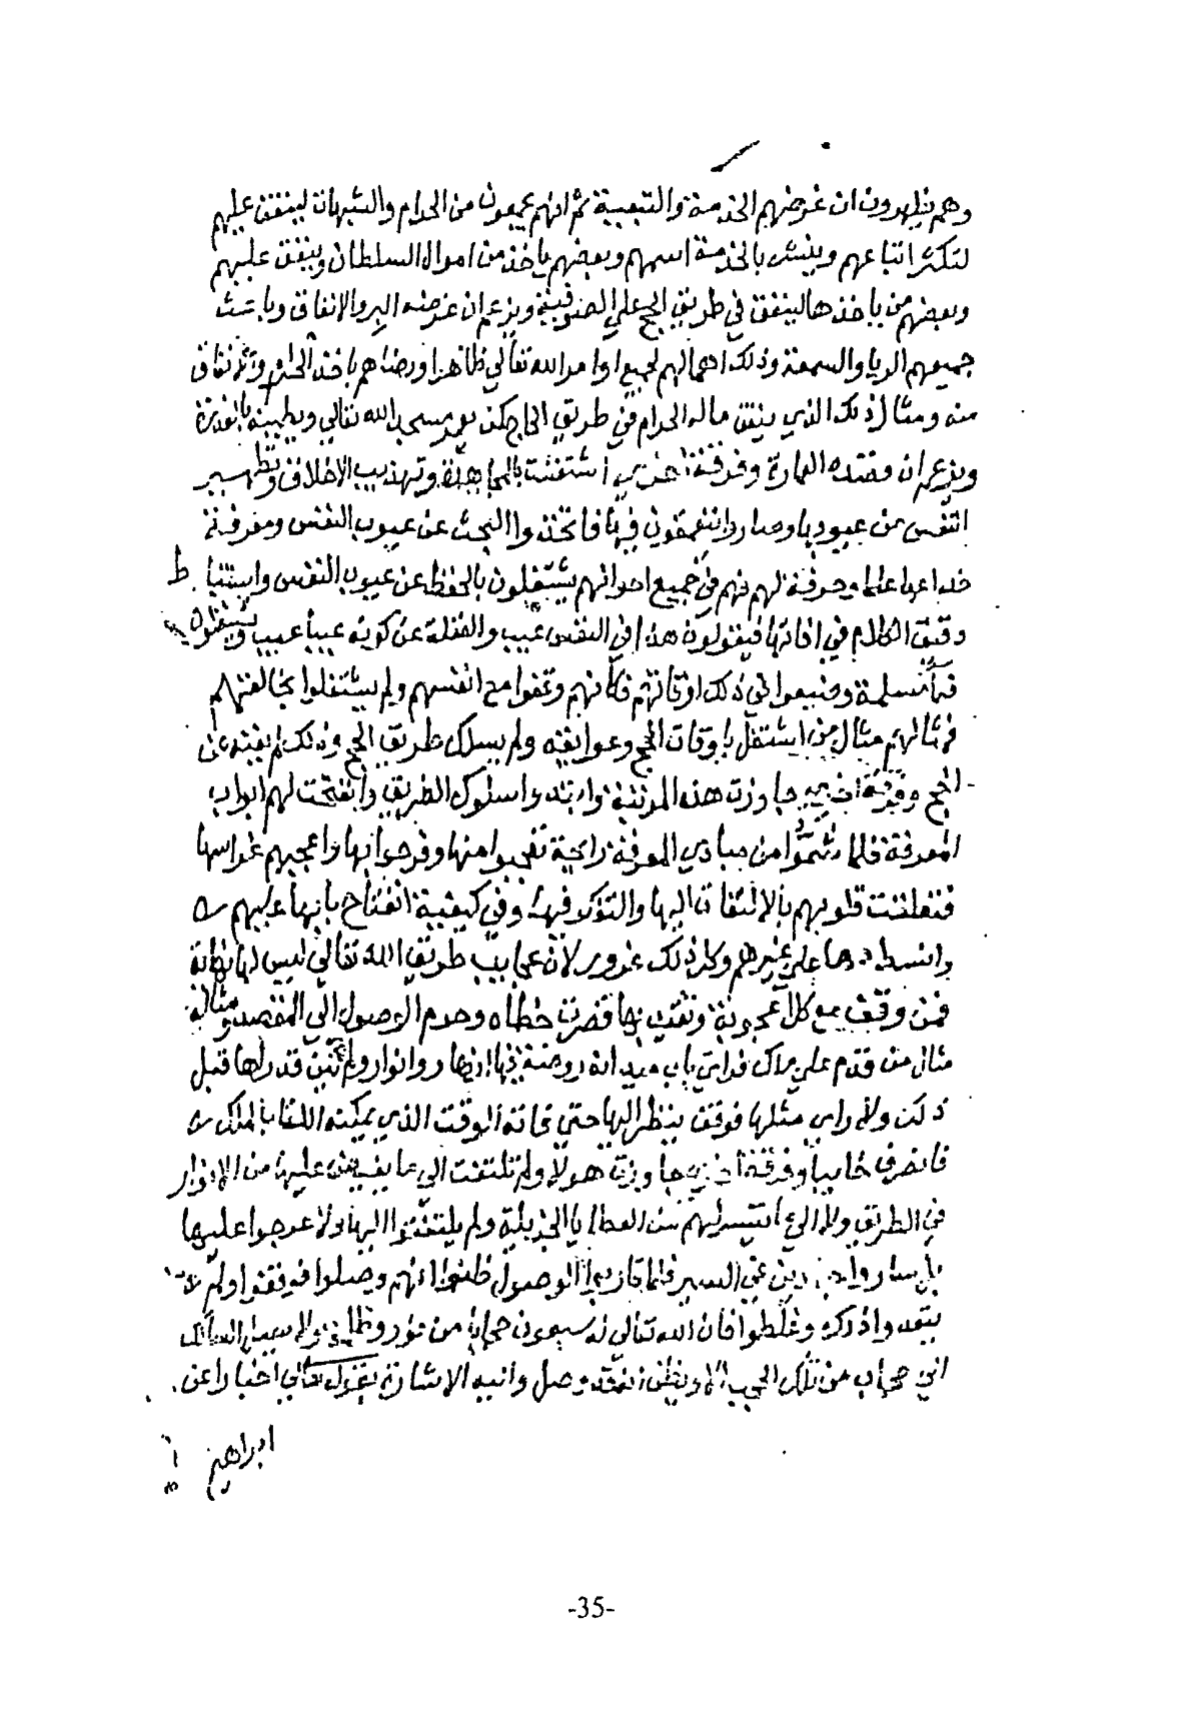 وهم يظهرون ان غرضهم الخدمة والتبعية ثم انهم يجمعون من الحرام والشبهات لينفق عليهم
لتكثر اتباعهم وينشر بالخدمة اسمهم وبعضهم ياخذ من اموال السلطان وينفق عليهم
وبعضهم من ياخذها لينفق في طريق الحج علي الصوفية ويزعم ان غرضه البر والانفاق وباعث
جميعهم الريا والسمعة وذلك اهمالهم لجميع اوامر الله تعالي ظاهرا ورضاهم باخذ الحرام والانفاق
منه ومثال ذلك الذي ينفق ماله الحرام في طريق الحاج كمن يعمر مسجد الله تعالي ويطينه بالعذرة
ويزعم ان قصده العمارة وفرقة اخري اشتغلت بالمجاهدة وتهذيب الاخلاق وتطهير
النفس من عيوبها وصاروا يتعمقون فيها فاتخذوا البحث عن عيوب النفس ومعرفة
خداعها علما وحرفة لهم فهم في جميع احوالهم يشتغلون بالحفظ عن عيوب النفس واستنباط
دقيق الكلام في افاتها فيقولون هذا في النفس عيب والغفلة عن كونه عيبا عيب ويشتغلون
فيها مسلسلة وضيعوا في ذلك اوقاتهم فكانهم وقفوا مع انفسهم ولم يشتغلوا بخالقهم
فمثالهم مثال من اشتغل باوقات الحج وعوائقه ولم يسلك طريق الحج وذلك لم يغنه عن
الحج وفرقة اخري جاوزت هذه المرتبة وابتدوا سلوك الطريق وانفتحت لهم ابواب
المعرفة فلما شمّوا من مبادي المعرفة رايحة تعجبوا منها وفرحوا بها واعجبهم غراسها
فتعلقت قلوبهم بالالتفات اليها والتفكر فيها وفي كيفية انفتاح بابها عليهم
وانسدادها علي غيرهم وكل ذلك غرور لان عجايب طريق الله تعالي ليس لها نهاية
فمن وقف مع كل اعجوبة وتقيد بها قصرت خطاه وحرم الوصول الي المقصد ومثاله
مثال من قدم علي ملك فراي باب ميدانه روضة فيها ازهار وانوار ولم يكن قد راها قبل
ذلك ولا راي مثلها فوقف ينظر اليها حتي فاته الوقت الذي يمكنه اللقا بالملك
فانصرف خايبا وفرقة اخري جاوزت هولا ولم تلتفت الي ما يفيض عليها من الانوار
في الطريق ولا الي ما تيسر لهم من العطايا الجزيلة ولم يلتفتوا اليها ولا عرجوا عليها
بل ساروا جادين في السير فلما قاربوا الوصول ظنوا انهم وصلوا فوقفوا ولم
يتعدوا ذلك وغلطوا فان الله تعالي له سبعون حجابا من نور وظلمة ولا يصل السالك
الي حجاب من تلك الحجب الا ويظن انه قد وصل واليه الاشارة بقوله تعالي اخبارا عن
ابراهيم
-35-